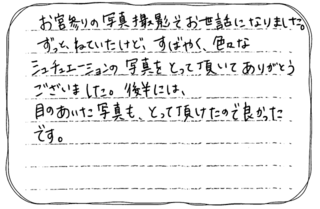 お宮参りの写真撮影でお世話になりました。
ずっと、ねていたけど、すばやく、色々な
シチュエーションの写真をとって頂いてありがとう
ございました。後半には、
目のあいた写真も、とって頂けたので良かった
です。